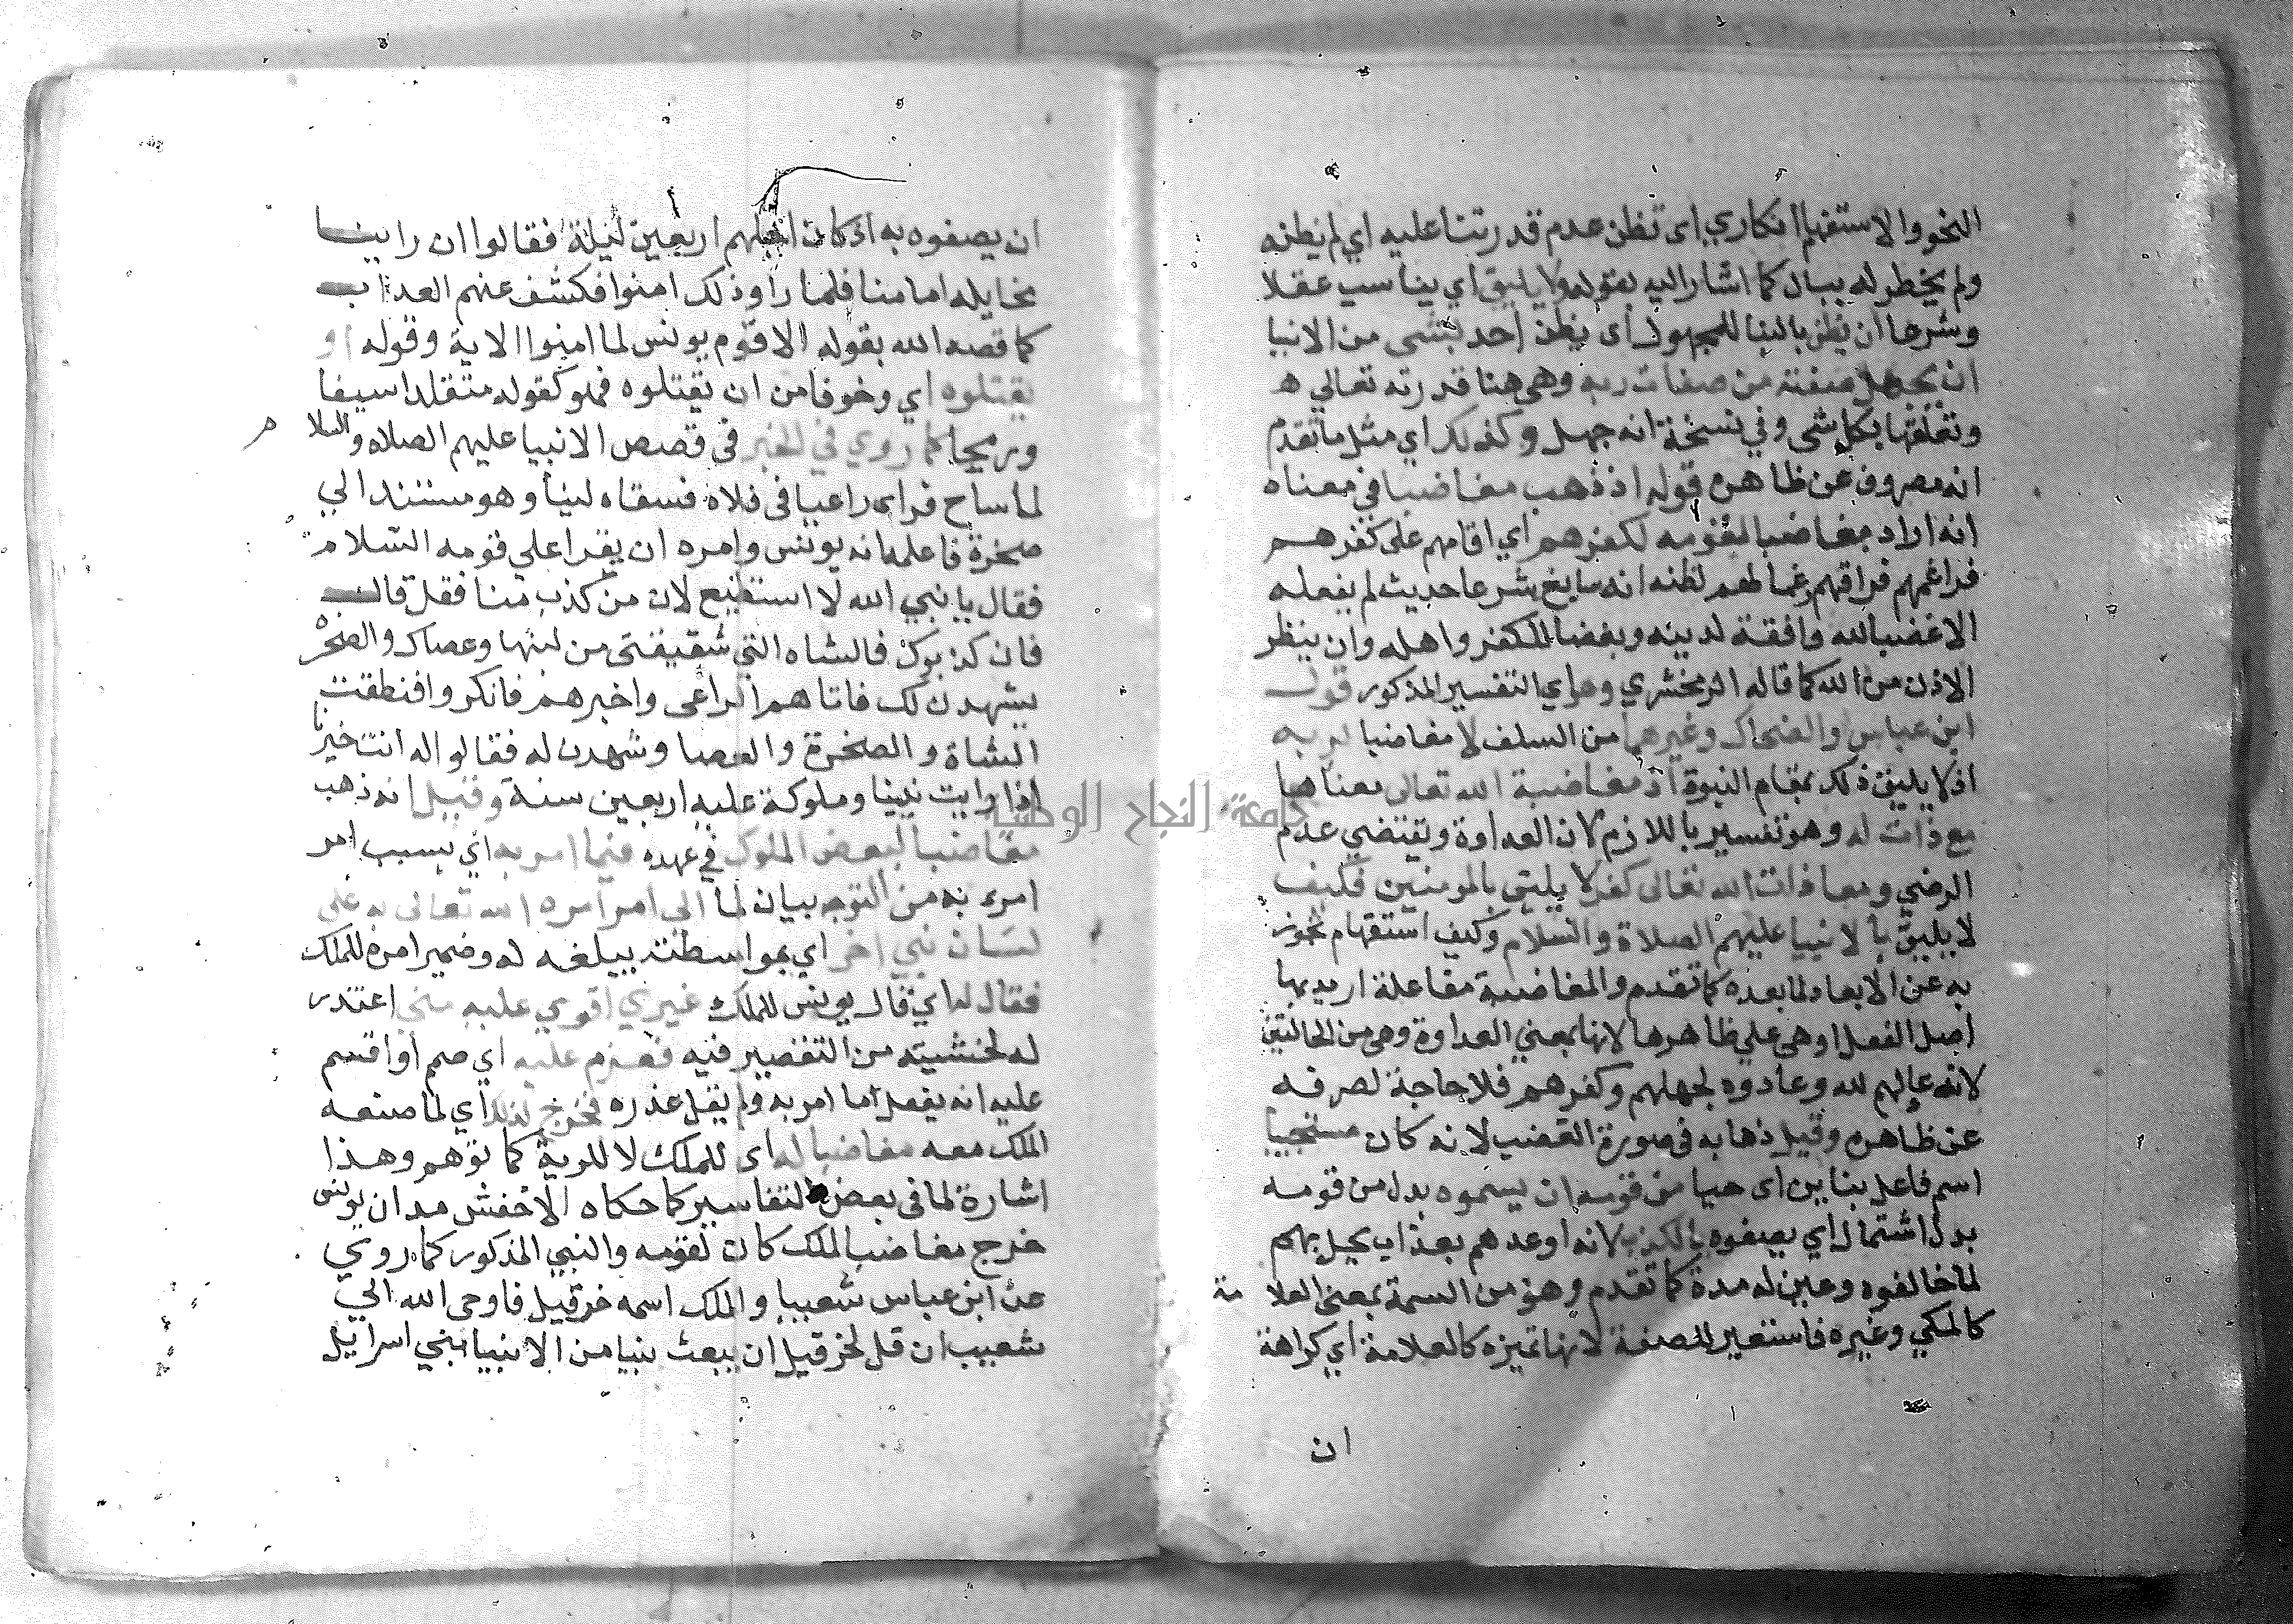 النحو والاستفهام انكاري اى تظن عدم قدرتنا عليه اي لم يظنه
ولم يخطر له ببال كما اشار اليه بقوله ولا يليق اي يناسب عقلا
وشرعا ان يظن بالبنا للمجهول اى يظن احد بنبي من الانبيا
ان يجهل صفة من صفات ربه وهى هنا قدرته تعالي
وتعلقها بكل شى وفي نسخة انه جهل وكذلك اي مثل ما تقدم
انه مصروف عن ظاهره قوله اذ ذهب مغاضبا في معناه
انه اراد مغاضبا لقومه لكفرهم اي اقامهم على كفرهم
فراغمهم فراقهم رغما لهم لظنه انه سايغ شرعا حديث لم يفعله
الا غضبا لله وافقة لدينه وبغضا للكفر واهله وان ينظر
الاذن من الله كما قاله الزمخشري وهواي التفسير المذكور قول
ابن عباس والضحاك وغيرهما من السلف لا مغاضبا لربه
اذ لا يليق ذلك بمقام النبوة اذ مغاضبة الله تعالى معناها
مع ذات له وهو تفسير باللازم لان العداوة وتقتضي عدم
الرضي ومعاذات الله تعالى كفر لا يليق بالمومنين فكيف
لا يليق بالانبيا عليهم الصلاة والسلام وكيف استفهام تجوز
به عن الابعاد لما بعده كما تقدم والمغاضبة مفاعلة اريد بها
اصل الفعل او هى علي ظاهرها لانها بمعني العداوة وهى من الجانبين
لانه عاداهم لله وعادوه لجهلهم وكفرهم فلا حاجة لصرفه
عن ظاهره وقيل ذهابه فى صورة الغضب لانه كان مستحييا
اسم فاعل بنايين اى حييا من قومه ان يسموه بدل من قومه
بدل اشتمال اي يصفوه بالكذب لانه اوعدهم بعذاب يحل بهم
لما خالفوه وعين له مدة كما تقدم وهو من السمة بمعنى العلا مة
كالمكي وغيره فاستعير للصفة لانها تميزه كالعلامة اي كراهة
ان
ان يصفوه به اذ كان اجلهم اربعين ليلة فقالوا ان راينا
مخايله امامنا فلما راو ذلك امنوا فكشف عنهم العذاب
كما قصه الله بقوله الا قوم يونس لما امنوا الاية وقوله او
يقتلوه اي وخوفا من ان يقتلوه فهو كقوله متقلدا سيفا
ورمحا كما روي في الخبر فى قصص الانبيا عليهم الصلاه والسلا م
لما ساح فراى راعيا فى فلاة فسقاه لبنا وهو مستند الي
صخرة فاعلمه انه يونس وامره ان يقرا علي قومه السلام
فقال يا نبي الله لا استطيع لان من كذب منا فقل قال
فان كذبوك فالشاه التي سقيتنى من لبنها وعصاك والصخر
يشهدن لك فاتاهم الراعى واخبرهم فانكروا فنطقت
الشاة والصخرة والعصا وشهدن له فقالوا له انت خيرنا
اذا رايت نبينا وملوكة عليه اربعين سنة وقيل انه ذهب
مغاضبا لبعض الملوك في عهده فيما امر به اي بسبب امر
امره به من التوجه بيان لما الي امر امره الله تعالى به على
لسان نبي اخر اي بمواسطته يبلغه له وضمير امره للملك
فقال له اي قال يونس للملك غيري اقوي عليه منى اعتذر
له لخشيته من التقصير فيه فعزم عليه اي صمم او اقسم
عليه انه يفعل ما امر به ولم يقل عذره فخرج لذلك اي لما صنعه
الملك معه مغاضبا له اى للملك لا لربه كما توهم وهذا
اشارة لما فى بعض التفاسير كما حكاه الاخفش مد ان يونس
خرج مغاضبا لملك كان لقومه والنبي المذكور كما روي
عن ابن عباس شعيبا والملك اسمه خرقيل فاوحى الله الي
شعيب ان قل لخرقيل ان يبعث نبيا من الانبيا لبني اسرايل
جامعة النجاح الوطنية